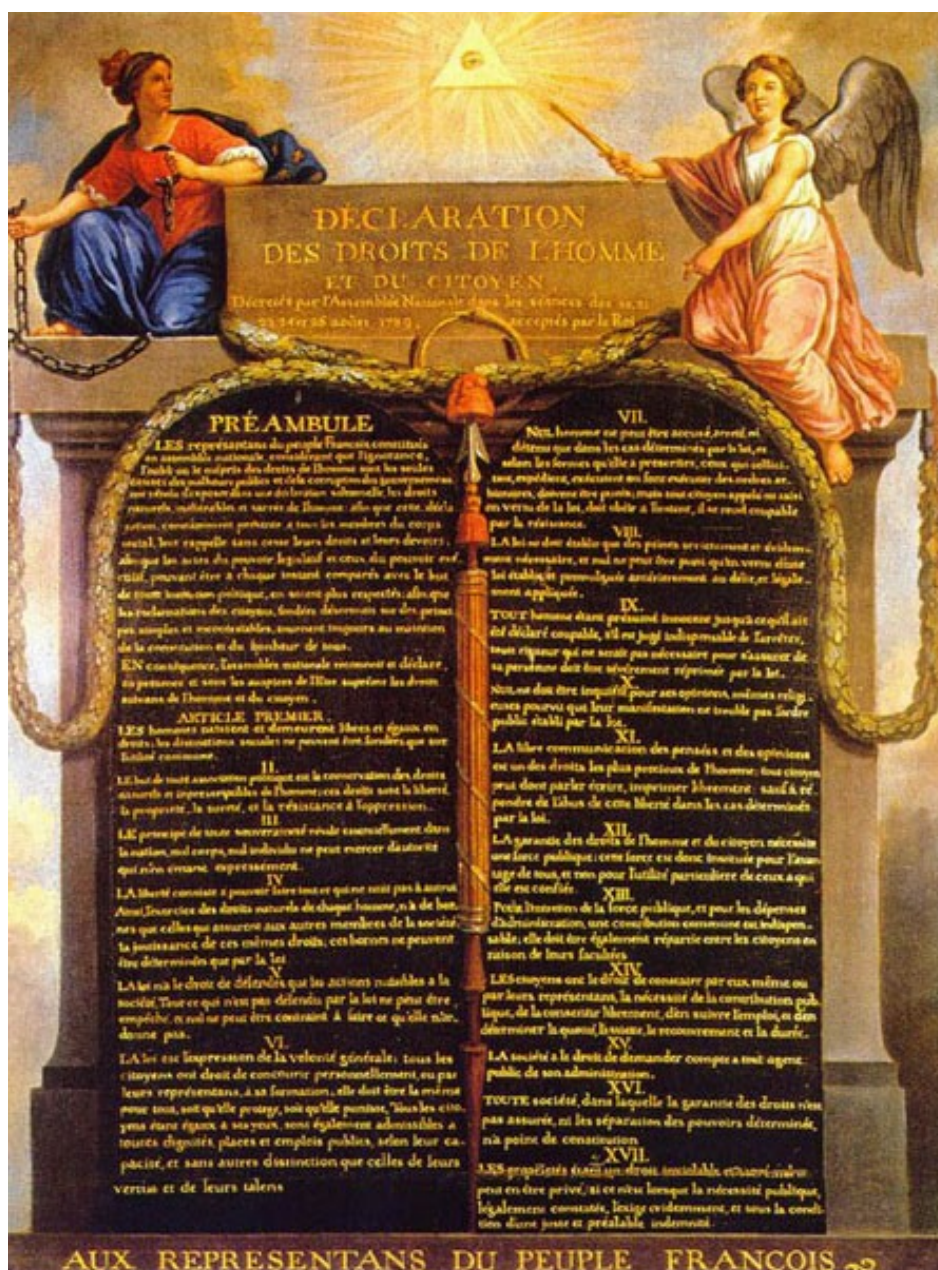 DÉCLARATION
DES DROITS DE L'HOMME
ET DU CITOYEN
Décretés par l'Assemblée Nationale dans les séances des 20, 21
23, 24 et 26 aoûst 1789, acceptés par le Roi
PRÉAMBULE
LES représentans du peuple François, constitués
en assemblée nationale, considérant que l'ignorance,
l'oubli ou le mépris des droits de l'homme sont les seules
causes des malheurs publics et de la corruption des gouvernemens
ont résolu d'exposer dans une déclaration solemnelle, les droits
naturels, inaliénables et sacrés de l'homme; afin que cette décla
ration, constamment présente a tous les membres du corps
social, leur rappelle sans cesse leurs droits et leurs devoirs;
afin que les actes du pouvoir législatif et ceux du pouvoir ex
cutif, pouvant être a chaque instant comparés avec le but
de toute institution politique, en soient plus respectés; afin que
les réclamations des citoyens, fondées désormais sur des princi
pes simples et incontestables, tournent toujours au maintien
de la constitution et du bonheur de tous.
EN conséquence, l'assemblée nationale reconnoit et déclare,
en présence et sous les auspices de l'Etre suprême les droits
suivans de l'homme et du citoyen.
ARTICLE PREMIER.
LES hommes naissent et demeurent libres et égaux en
droits; les distinctions sociales ne peuvent être fondées que sur
l'utilité commune.
II.
LE but de toute association politique est la conservation des droits
naturels et imprescriptibles de l'homme; ces droits sont la liberté,
la propriété, la sureté, et la résistance à l'oppression.
III.
LE principe de toute souveraineté réside essentiellement dans
la nation, nul corps, nul individu ne peut exercer d'autorité
qui n'en émane expressément.
IV
LA liberté consiste a pouvoir faire tout ce qui ne nuit pas à autrui
Ainsi, l'exercice des droits naturels de chaque homme, n'a de bor
nes que celles qui assurent aux autres membres de la société
la jouissance de ces mêmes droits; ces bornes ne peuvent
être déterminées que par la loi
V.
LA loi n'a le droit de défendre que les actions nuisibles a la
société. Tout ce qui n'est pas défendu par la loi ne peut être
empêché, et nul ne peut être contraint à faire ce qu'elle n'or
donne pas.
VI.
LA loi est l'expression de la volonté générale; tous les
citoyens ont droit de concourir personnellement, ou par
leurs représentans, à sa formation; elle doit être la même
pour tous, soit qu'elle protege, soit qu'elle punisse, Tous les cito
yens étant égaux à ses yeux, sont également admissibles a
toutes dignités, places et emplois publics, selon leur ca
pacité, et sans autres distinction que celles de leurs
vertus et de leurs talens
VII.
NUL homme ne peut être accusé, arreté, ni
détenu que dans les cas déterminés par la loi, et
selon les formes qu'elle a prescrites, ceux qui sollici
tent, expédient, exécutent ou font exécuter des ordres ar
bitraires, doivent être punis; mais tout citoyen appelé ou saisi
en vertu de la loi, doit obéir a l'instant, il se rend coupable
par la résistance.
VIII.
LA loi ne doit établir que des peines strictement et évidem
ment nécessaire, et nul ne peut être puni qu'en vertu d'une
loi établie et promulguée antérieurement au délit, et légale
ment appliquée.
IX.
TOUT homme étant présumé innocent jusqu'à ce qu'il ait
été déclaré coupable, s'il est jugé indispensable de l'arrêter,
toute rigueur qui ne serait pas nécessaire pour s'assurer de
sa personne doit être sévèrement réprimée par la loi.
X.
NUL ne doit être inquiété pour ses opinions, mêmes religi
euses pourvu que leur manifestation ne trouble pas l'ordre
public établi par la loi.
XI.
LA libre communication des pensées et des opinions
est un des droits les plus precieux de l'homme; tout citoyen
peut donc parler écrire, imprimer librement sauf à ré
pondre de l'abus de cette liberté dans les cas déterminés
par la loi.
XII.
LA garantie des droits de l'homme et du citoyen nécessite
une force publique; cette force est donc instituée pour l'avan
tage de tous, et non pour l'utilité particuliere de ceux a qui
elle est confiée.
XIII.
POUR l'entretien de la force publique, et pour les dépenses
d'administration, une contribution commune est indispen
sable, elle doit être également répartie entre les citoyens en
raison de leurs facultées
XIV.
LES citoyens ont le droit de constater par eux même ou
par leurs représentans, la nécessité de la contribution pub
lique, de la consentir librement, d'en suivre l'emploi, et d'en
déterminer la quotité, l'assiette, le recouvrement et la durée.
XV.
LA société a le droit de demander compte a tout agent
public de son administration.
XVI.
TOUTE société, dans laquelle la garantie des droits n'est
pas assurée, ni les séparation des pouvoirs déterminée,
n'a point de constitution
XVII.
LES propriétés étant un droit inviolable et sacré, nul ne
peut en être privé, si ce n'est lorsque la nécessité publique,
légalement constatée, l'exige evidemment, et sous la condi
tion d'une juste et préalable indemnité.
AUX REPRESENTANS DU PEUPLE FRANCOIS